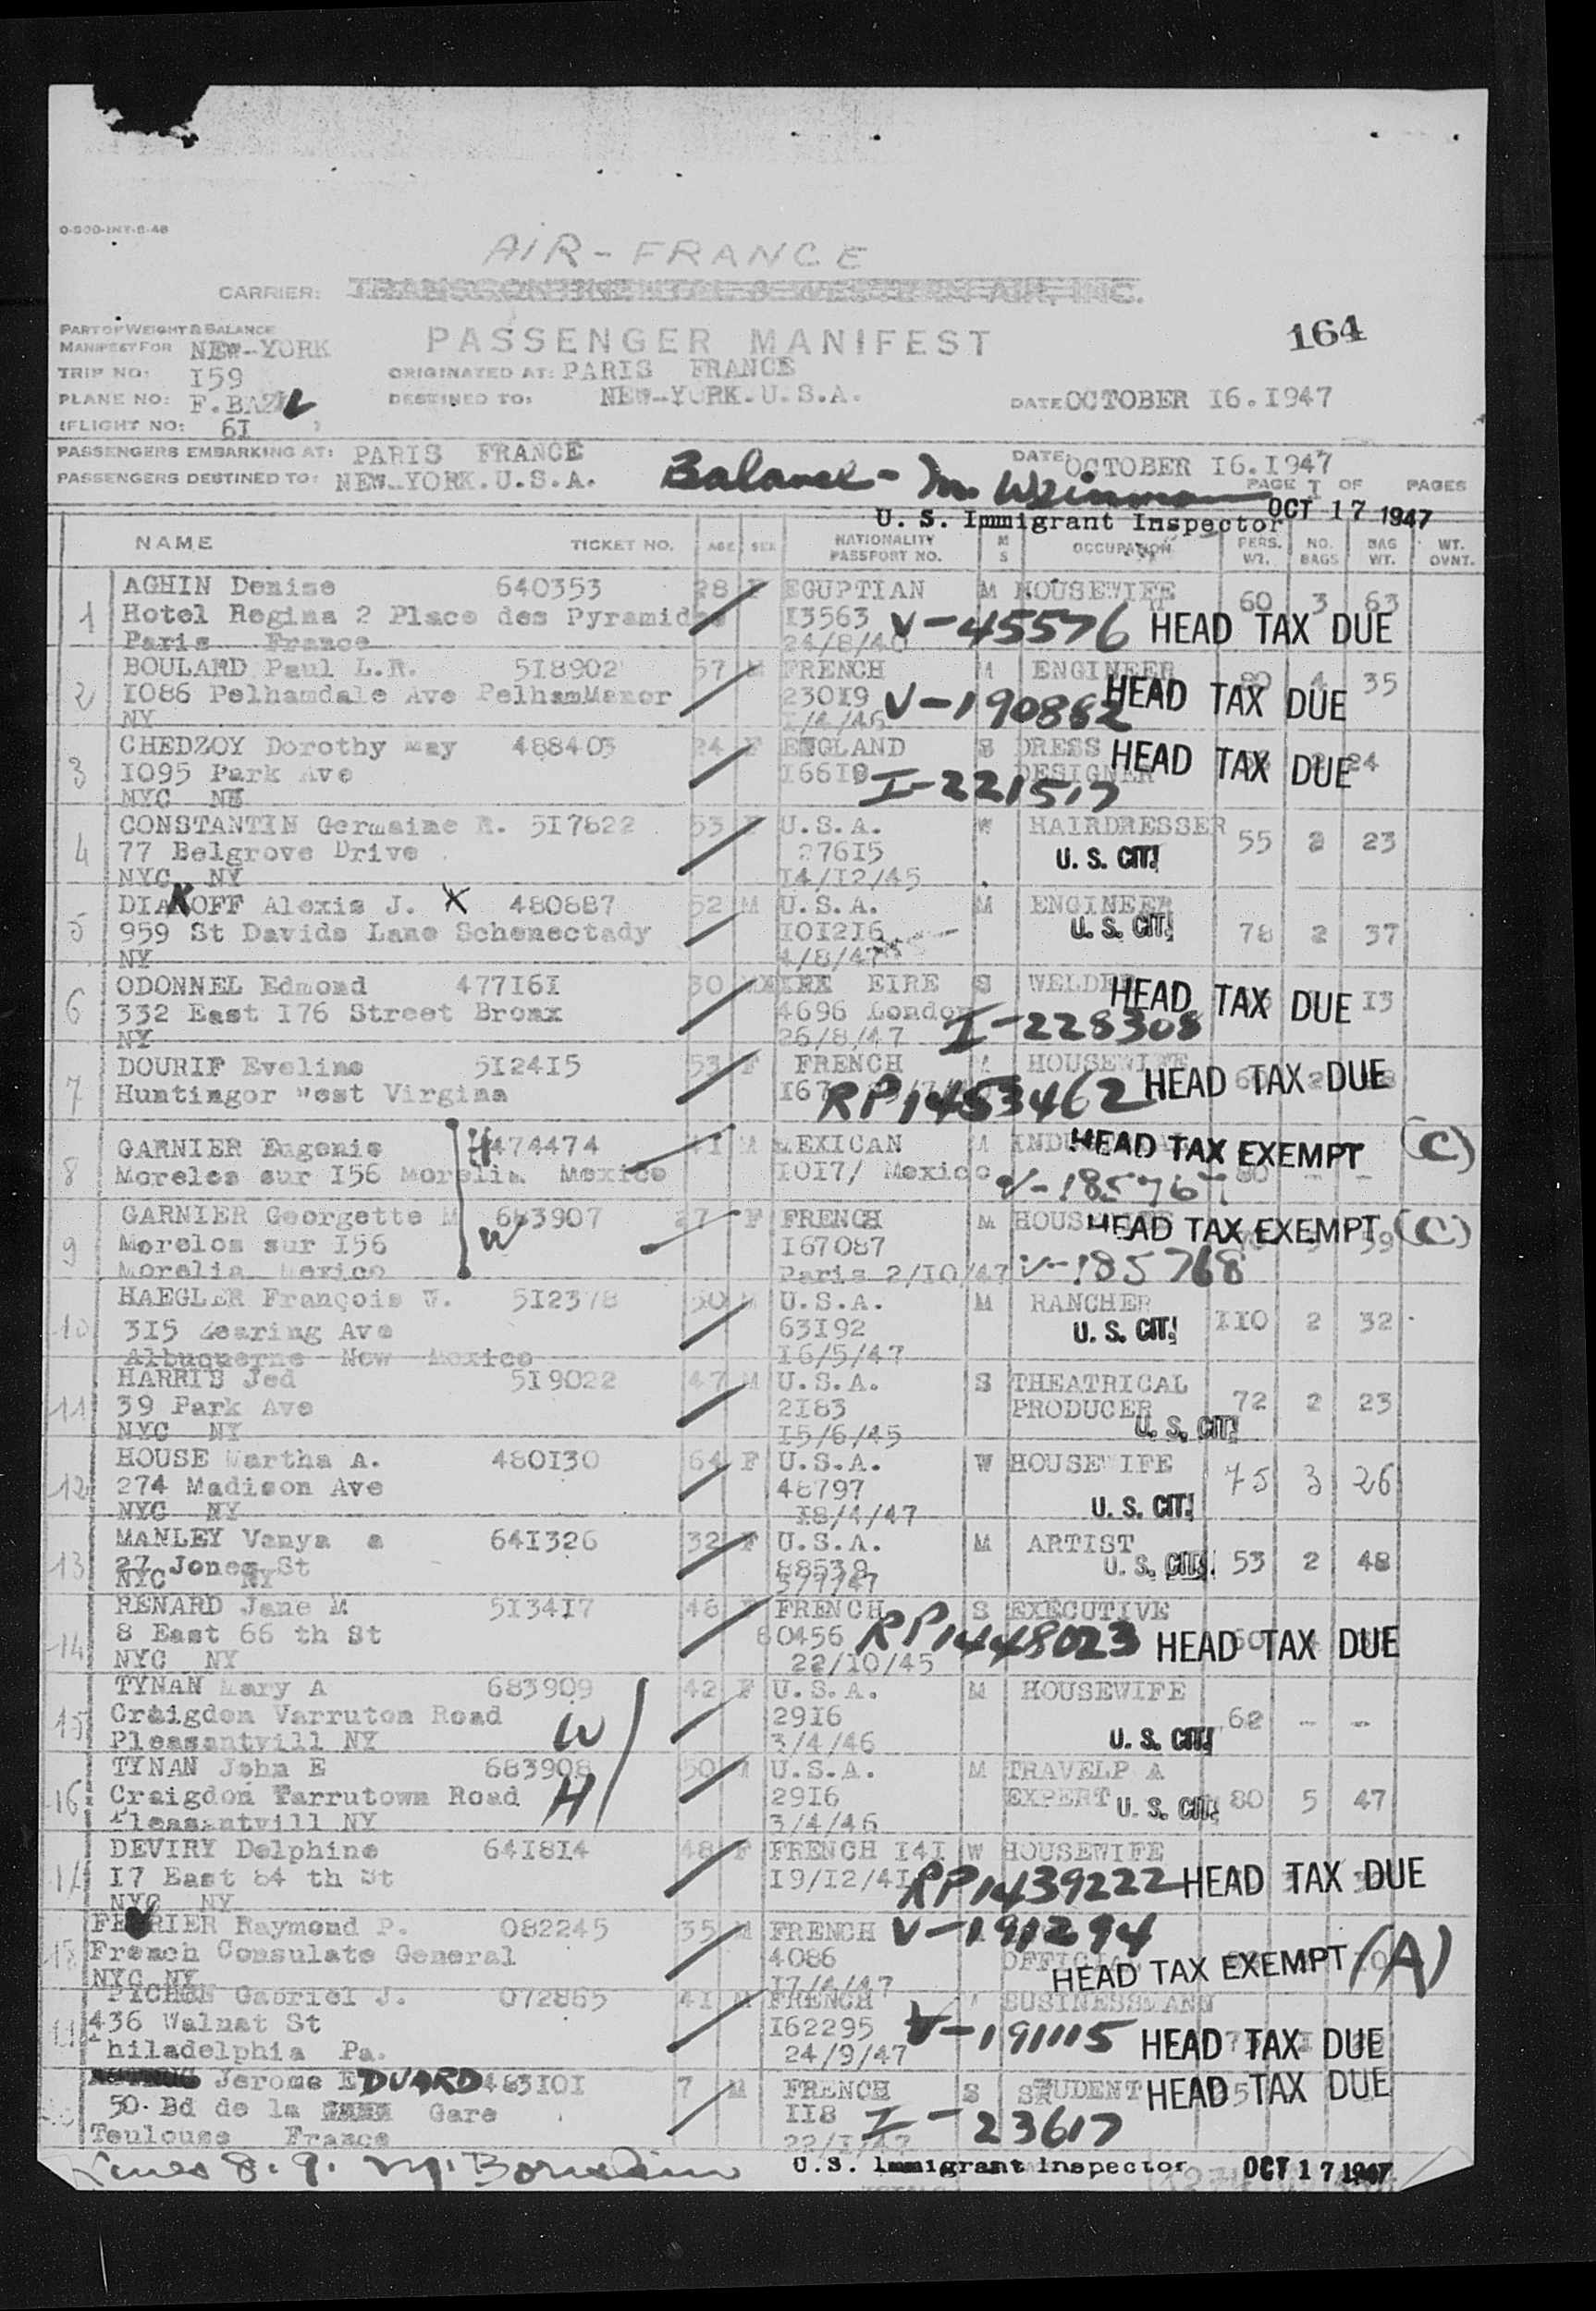 0-500-INT-8-46
AIR-FRANCE
CARRIER: TRANSCONTINENTAL & WESTERN AIR, INC.
PART OF WEIGHT & BALANCE
MANIFEST FOR NEW-YORK
PASSENGER MANIFEST
164
TRIP NO: I59
ORIGINATED AT: PARIS FRANCE
PLANE NO: F.BAZL
DESTINED TO: NEW-YORK.U.S.A.
DATE OCTOBER I6.I947
(FLIGHT NO: 6I )
PASSENGERS EMBARKING AT: PARIS FRANCE
DATE OCTOBER I6.I947
PASSENGERS DESTINED TO: NEW-YORK.U.S.A.
Balance - M. Weinman
PAGE I OF PAGES
U. S. Immigrant Inspector OCT 17 1947
NAME TICKET NO. AGE SEX NATIONALITY PASSPORT NO. M S OCCUPATION PERS. WT. NO. BAGS BAG WT. WT. OVNT.
1 AGHIN Denise 640353 28 F EGUPTIAN M HOUSEWIFE 60 3 63
Hotel Regina 2 Place des Pyramides I3563 V-45576 HEAD TAX DUE
Paris France 24/8/46
2 BOULARD Paul L.R. 5I8902 57 M FRENCH M ENGINEER 80 4 35
I086 Pelhamdale Ave PelhamManor 23019 V-190882 HEAD TAX DUE
NY
3 CHEDZOY Dorothy May 488403 24 F ENGLAND S DRESS HEAD TAX DUE 24
I095 Park Ave I66I9 DESIGNER
NYC I-221517
4 CONSTANTIN Germaine R. 5I7622 53 F U.S.A. W HAIRDRESSER 55 2 23
77 Belgrove Drive 276I5 U. S. CIT.
NYC NY I4/I2/45
5 DIAKOFF Alexis J. X 480887 52 M U.S.A. M ENGINEER 78 2 37
959 St Davids Lane Schenectady I0I2I6 U. S. CIT.
NY 4/8/47
6 ODONNEL Edmond 477I6I 30 M EIRE S WELDER HEAD TAX DUE I3
332 East I76 Street Bronx 4696 London
NY 26/8/47 I-228308
7 DOURIF Eveline 5I24I5 53 F FRENCH HOUSEWIFE
Huntingor West Virgina I67 RP1453462 HEAD TAX DUE
8 GARNIER Eugenie H 474474 41 M MEXICAN M HEAD TAX EXEMPT (C)
Morelos sur I56 Morelia Mexico I0I7/ Mexico V-185767 80 - -
9 GARNIER Georgette M 683907 27 F FRENCH M HOUSEWIFE HEAD TAX EXEMPT (C) 59
Morelos sur I56 W I67087
Morelia Mexico Paris 2/I0/47 V-185768
10 HAEGLER François W. 5I2378 50 M U.S.A. M RANCHER II0 2 32
3I5 Ave 63I92 U. S. CIT.
Albuquerne New Mexico I6/5/47
11 HARRIS Jed 5I9022 47 M U.S.A. S THEATRICAL 72 2 23
39 Park Ave 2I83 PRODUCER U. S. CIT.
NYC NY I5/6/45
12 HOUSE Martha A. 480I30 64 F U.S.A. W HOUSEWIFE 75 3 26
274 Madison Ave 48797 U. S. CIT.
NYC NY I8/4/47
13 MANLEY Vanya a 64I326 32 F U.S.A. M ARTIST 53 2 48
27 Jones St 88539 U. S. CIT.
NYC NY
14 RENARD Jane M 5I34I7 48 F FRENCH S EXECUTIVE
8 East 66 th St 60456 RP1448023 HEAD TAX DUE
NYC NY 22/I0/45
15 TYNAN Mary A 683909 42 F U.S.A. M HOUSEWIFE 62 - -
Craigdon Varruton Road W 29I6 U. S. CIT.
Pleasantvill NY 3/4/46
16 TYNAN John E 683908 50 M U.S.A. M TRAVEL EXPERT 80 5 47
Craigdon Tarrutown Road H 29I6 U. S. CIT.
Pleasantvill NY 3/4/46
17 DEVIRY Delphine 64I8I4 48 F FRENCH I4I W HOUSEWIFE
I7 East 84 th St I9/I2/4I RP1439222 HEAD TAX DUE
NYC NY
18 Raymond P. 082245 35 M FRENCH V-191294
French Consulate General 4086 OFFICIAL HEAD TAX EXEMPT (A)
NYC NY I7/4/47
PICHON Gabriel J. 072865 41 M FRENCH BUSINESSMANN
436 Walnut St I62295 V-191115 HEAD TAX DUE
Philadelphia Pa. 24/9/47
Jerome EDUARD 483I0I 7 M FRENCH S STUDENT HEAD TAX DUE
50. Bd de la Gare II8 I-23617
Toulouse France 22/I/47
U.S. Immigrant Inspector OCT 17 1947